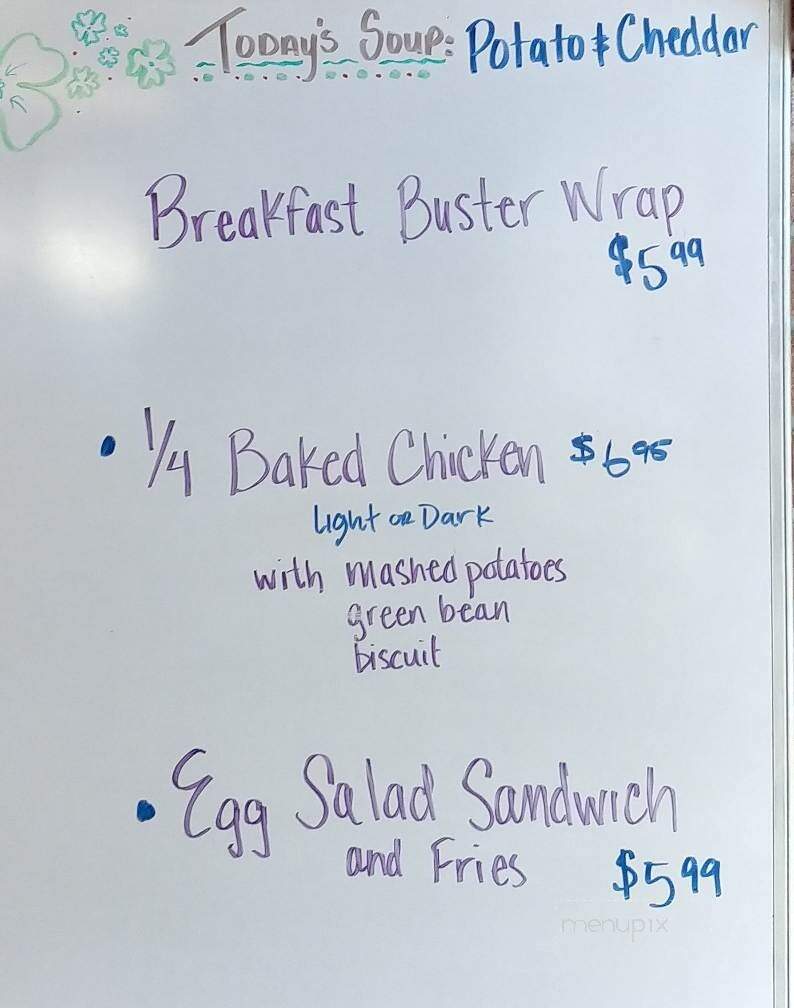 Today's Soup: Potato & Cheddar
Breakfast Buster Wrap
$5.99
• 1/4 Baked Chicken $6.95
Light or Dark
with mashed potatoes
green bean
biscuit
• Egg Salad Sandwich
and Fries $5.99
menupix